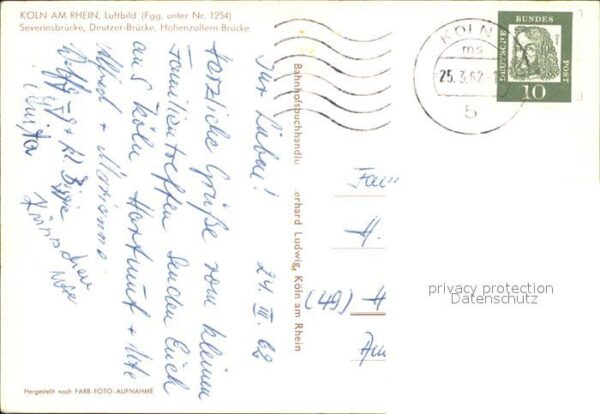 KÖLN AM RHEIN, Luftbild (Fgg. unter Nr. 1254)
Severinsbrücke, Deutzer-Brücke, Hohenzollern Brücke
24. III. 62
Ihr Lieben!
Herzliche Grüße vom kleinen
Familientreffen senden Euch
aus Köln Hartmut + Ute
Alfred + Marianne
Christa
Ute
Bahnhofsbuchhandlu
erhard Ludwig, Köln am Rhein
KÖLN
ms
25.3.62
5
DEUTSCHE
BUNDES
POST
10
Fam
H.
(49) H
Am
privacy protection
Datenschutz
Hergestellt nach FARB-FOTO-AUFNAHME